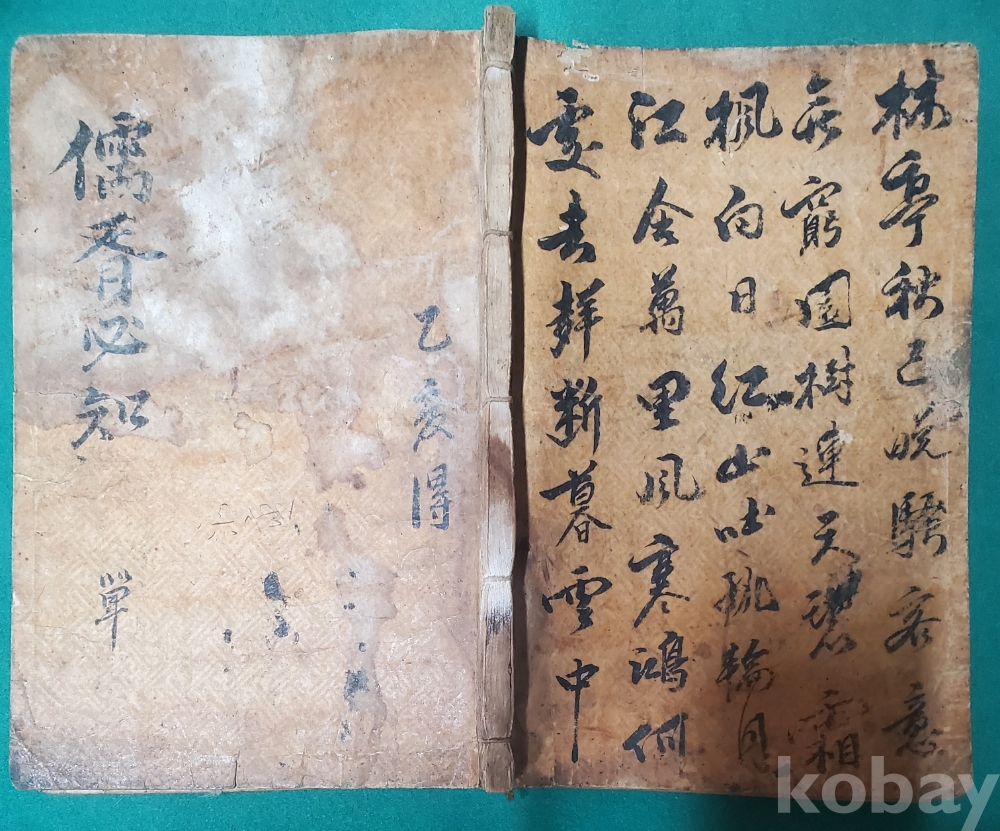 林亭秋已晩騷客意
无窮園樹連天碧霜
楓向日紅山吐孤輪月
江含萬里風寒鴻何
處去聲断暮雲中
乙亥得
儒胥必知
單
kobay